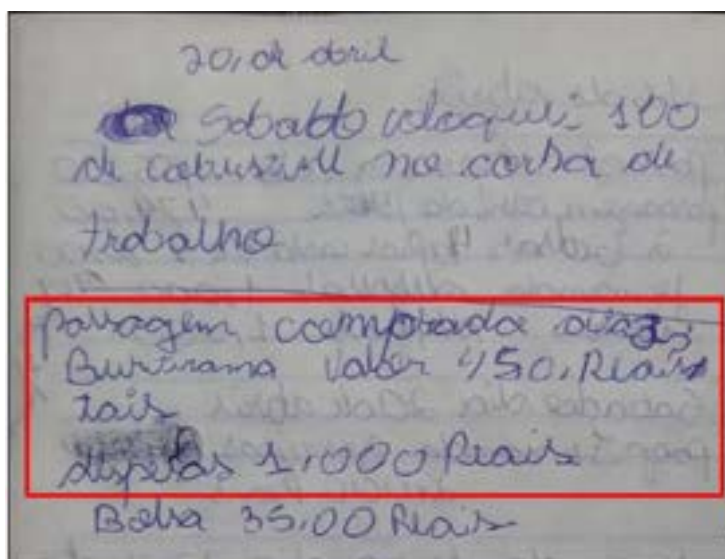 20, de abril
Sabado coloquei: 100
de cobustivll no corsa de
trabalho
passagem comprada
Buririrama valor 450, Reais
tais
dispesas 1,000 Reais
Bolsa 35,00 Reais